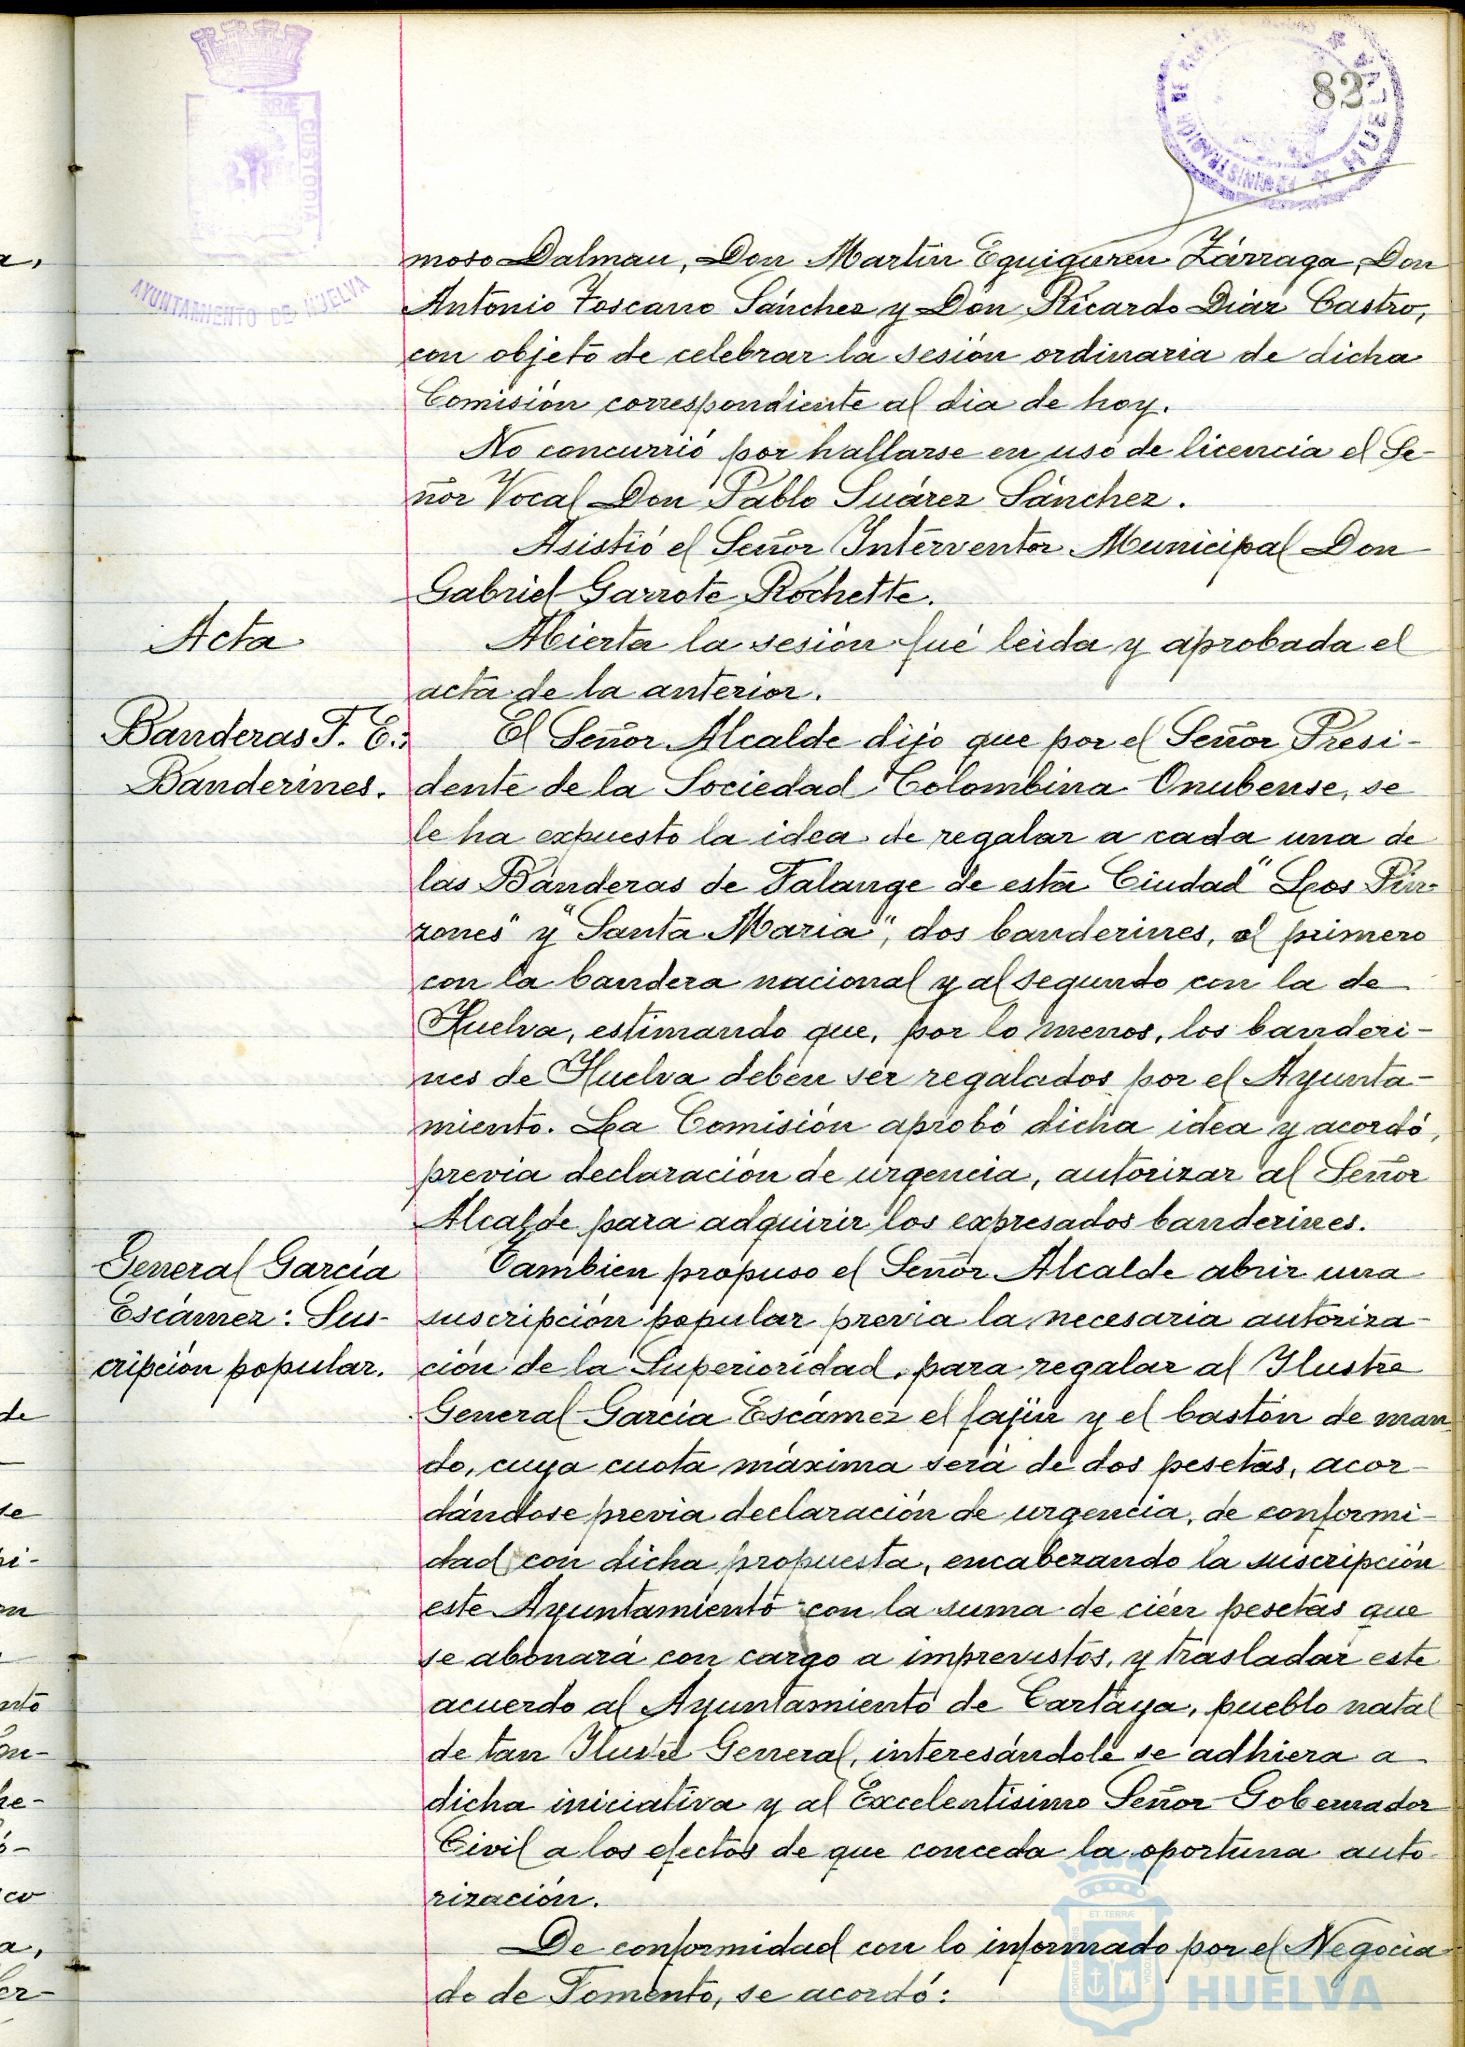 82
AYUNTAMIENTO DE HUELVA
moso Dalmau, Don Martín Eguiguren Zárraga, Don
Antonio Toscano Sánchez y Don Ricardo Diaz Castro,
con objeto de celebrar la sesión ordinaria de dicha
Comisión correspondiente al dia de hoy.
No concurrió por hallarse en uso de licencia el Se-
ñor Vocal Don Pablo Suárez Sánchez.
Asistió el Señor Interventor Municipal Don
Gabriel Garrote Rochette.
Acta
Abierta la sesión fué leida y aprobada el
acta de la anterior.
Banderas F. E.:
Banderines.
El Señor Alcalde dijo que por el Señor Presi-
dente de la Sociedad Colombina Onubense, se
le ha expuesto la idea de regalar a cada una de
las Banderas de Falange de esta Ciudad "Los Pin-
zones" y "Santa Maria", dos banderines, al primero
con la bandera nacional y al segundo con la de
Huelva, estimando que, por lo menos, los banderi-
nes de Huelva deben ser regalados por el Ayunta-
miento. La Comisión aprobó dicha idea y acordó,
previa declaración de urgencia, autorizar al Señor
Alcalde para adquirir los expresados banderines.
General García
Escámez: Sus-
cripción popular.
Tambien propuso el Señor Alcalde abrir una
suscripción popular previa la necesaria autoriza-
ción de la Superioridad, para regalar al Ilustre
General García Escámez el fajín y el bastón de man-
do, cuya cuota máxima será de dos pesetas, acor-
dándose previa declaración de urgencia, de conformi-
dad con dicha propuesta, encabezando la suscripción
este Ayuntamiento con la suma de cién pesetas que
se abonará con cargo a imprevistos, y trasladar este
acuerdo al Ayuntamiento de Cartaya, pueblo natal
de tan Ilustre General, interesándole se adhiera a
dicha iniciativa y al Excelentísimo Señor Gobernador
Civil a los efectos de que conceda la oportuna auto-
rización.
De conformidad con lo informado por el Negocia-
do de Fomento, se acordó:
Ayuntamiento de
HUELVA